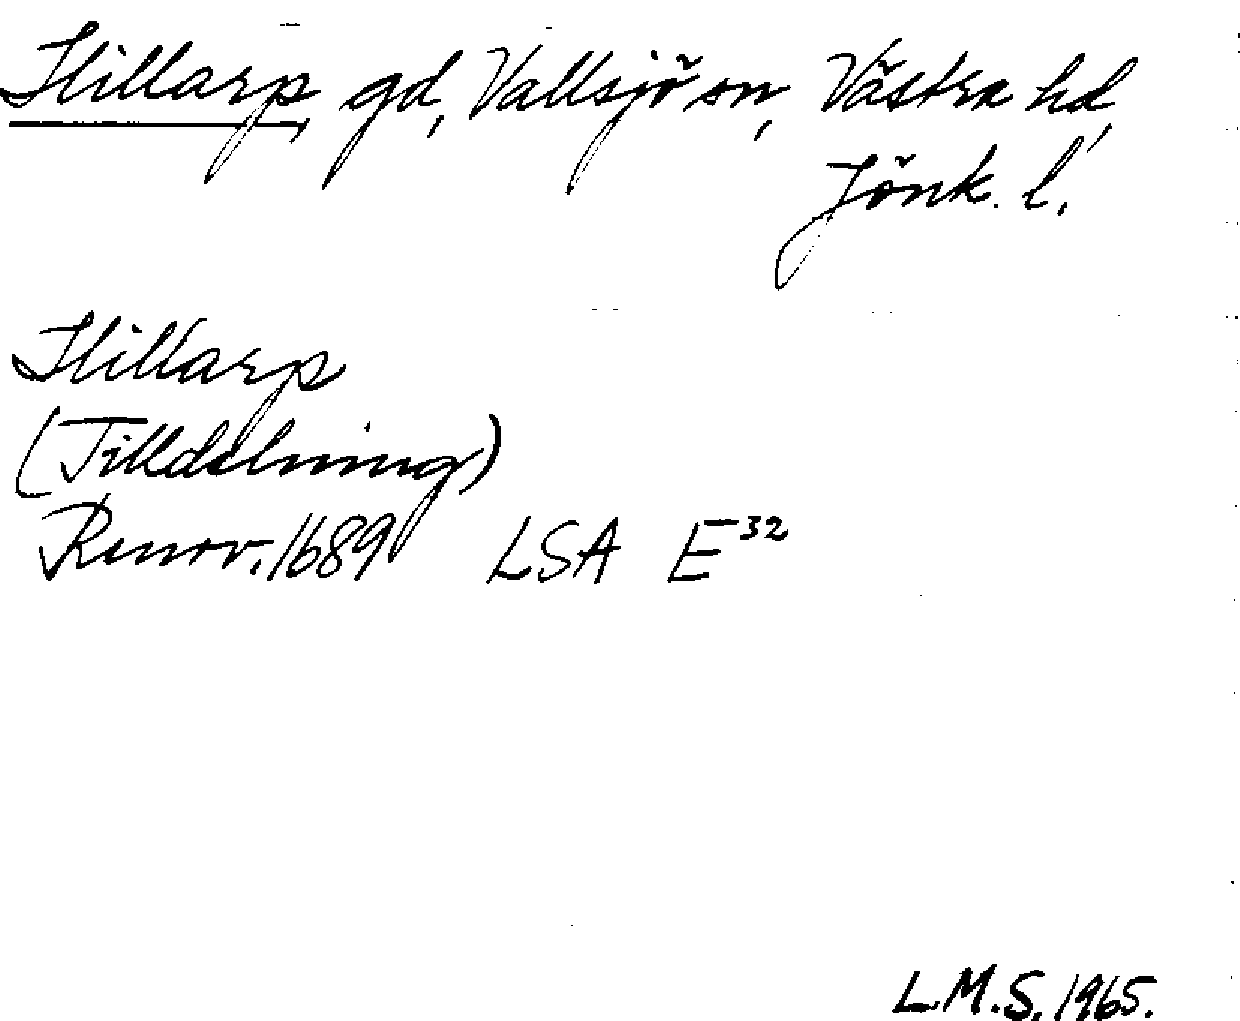 Hillarp, gd, Vallsjö sn, Västra hd,
Jönk. l.
Hillarp
(Tilldelning)
Renov. 1689 LSA E32
L.M.S. 1965.